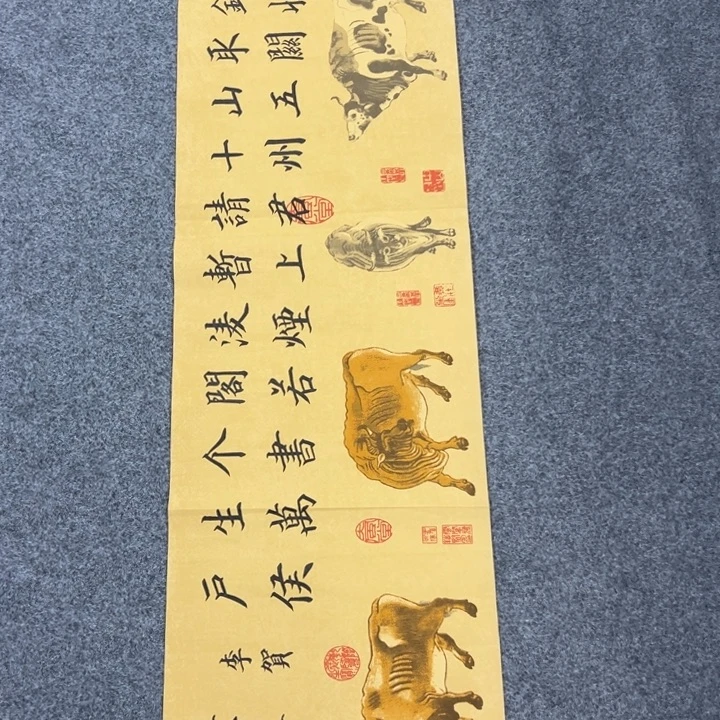 取關
山五
十州
請君
暫上
淩煙
閣若
个書
生萬
戶侯
李賀